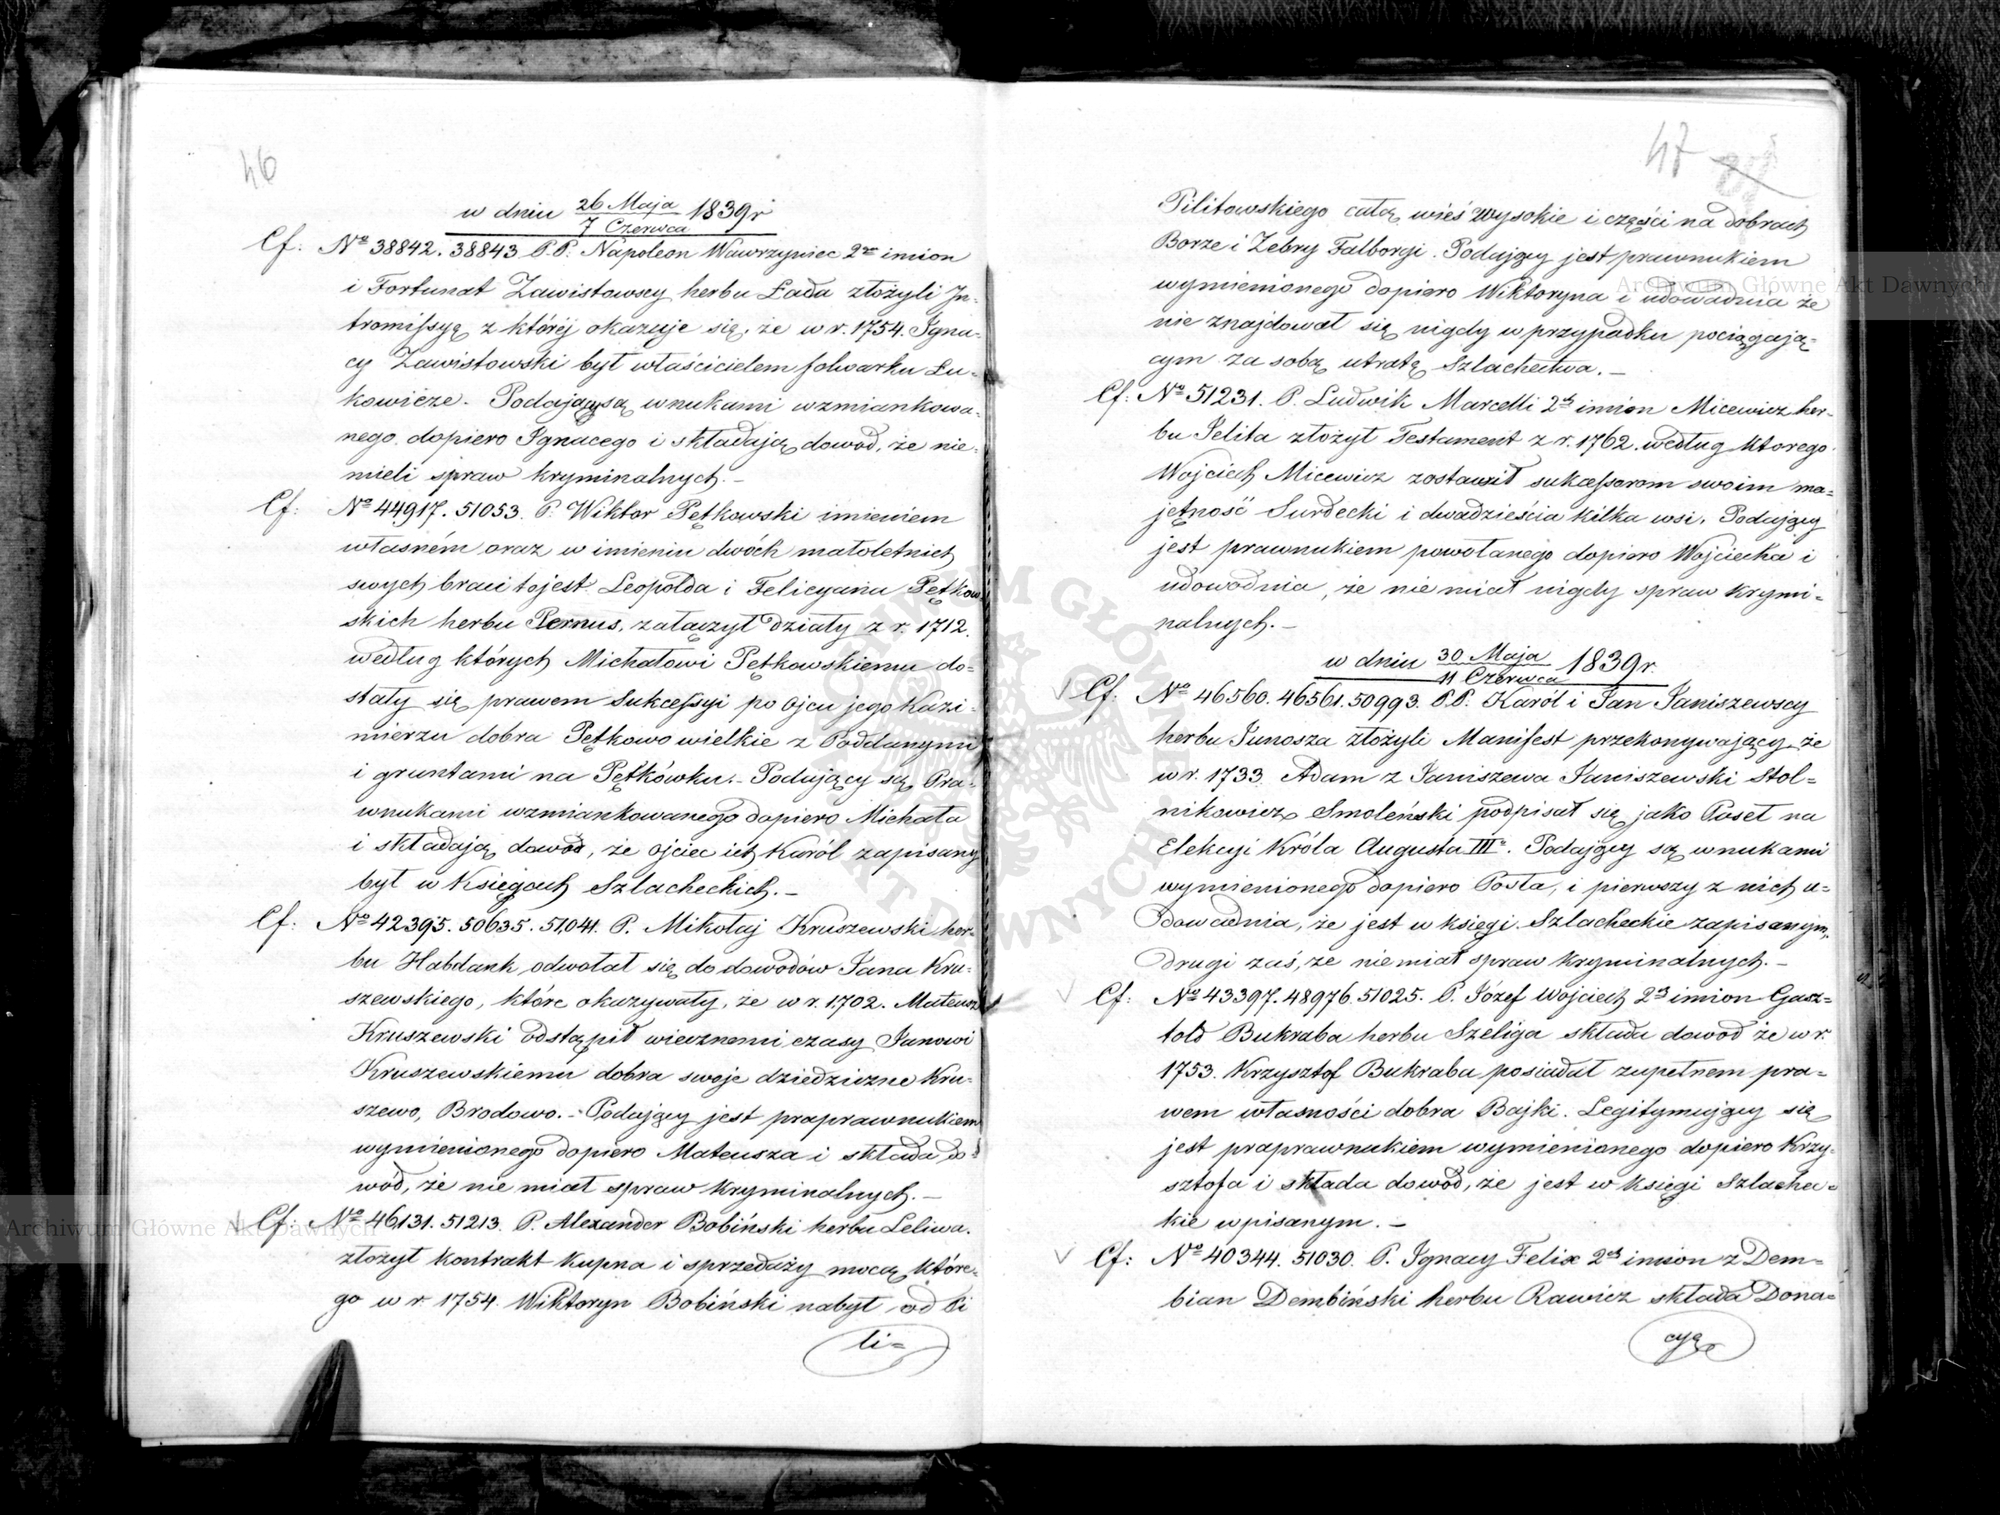 46
w dniu 26 Maja / 7 Czerwca 1839 r
Cf: No 38842. 38843 P.P. Napoleon Wawrzyniec 2ch imion
i Fortunat Zawistowscy herbu Łada złożyli In-
tromissyę z któréj okazuje się, że w r. 1754. Igna-
cy Zawistowski był właścicielem folwarku Łu-
kowicze. Podający są wnukami wzmiankowa-
nego dopiero Ignacego i składają dowód, że nie-
mieli spraw kryminalnych. –
Cf: No 44917. 51053. P. Wiktor Pętkowski imieniem
własném oraz w imieniu dwóch małoletnich
swych braci tojest Leopolda i Felicyana Pętkow
skich herbu Pernus, załączył działy z r. 1712.
według których Michałowi Pętkowskiemu do-
stały się prawem Sukcessyi po ojcu jego Kazi-
mierzu dobra Pętkowo wielkie z Poddanymi
i gruntami na Pętkówku. – Podający są Pra-
wnukami wzmiankowanego dopiero Michała
i składają dowód, że ojciec ich Karól zapisany
był w Księgach Szlacheckich. –
Cf: No 42395. 50635. 51041. P. Mikołaj Kruszewski her-
bu Habdank, odwołał się do dowodów Jana Kru-
szewskiego, które okazywały, że w r. 1702. Mateusz
Kruszewski odstąpił wiecznemi czasy Janowi
Kruszewskiemu dobra swoje dziedziczne Kru-
szewo, Brodowo. – Podający jest praprawnukiem
wymienionego dopiero Mateusza i składa do-
wód, że nie miał spraw kryminalnych. –
Cf: No 46131. 51213. P. Alexander Bobiński herbu Leliwa.
złożył kontrakt kupna i sprzedaży mocą które-
go w r. 1754. Wiktoryn Bobiński nabył od Pi
li=
47
Pilitowskiego całą wieś Wysokie i części na dobrach
Borze i Żebry Falborgi. Podający jest prawnukiem
wymienionego dopiero Wiktoryna i udowadnia że
nie znajdował się nigdy w przypadku pociągają-
cym za sobą utratę Szlachectwa. –
Cf: No 51231. P. Ludwik Marcelli 2ch imion Micewicz her-
bu Jelita złożył Testament z r. 1762. według ktorego
Wojciech Micewicz zostawił sukcessorom swoim ma=
jętność Surdecki i dwadzieścia kilka wsi. Podający
jest prawnukiem powołanego dopiero Wojciecha i
udowodnia, że nie miał nigdy spraw krymi-
nalnych. –
w dniu 30 Maja / 11 Czerwca 1839 r.
Cf: No 46560. 46561. 50993. P.P. Karól i Jan Janiszewscy
herbu Junosza złożyli Manifest przekonywający że
w r. 1733 Adam z Janiszewa Janiszewski Stol=
nikowicz Smoleński podpisał się jako Poseł na
Elekcyi Króla Augusta IIIo. Podający są wnukami
wymienionego dopiero Posła, i pierwszy z nich u=
dowadnia, że jest w księgi Szlacheckie zapisanym,
drugi zaś, że nie miał spraw kryminalnych. –
Cf: No 43397. 48976. 51025. P. Józef Wojciech 2ch imion Gasz=
told Bukraba herbu Szeliga składa dowód że w r.
1753. Krzysztof Bukraba posiadał zupełnem pra=
wem własności dobra Bajki. Legitymujący się
jest praprawnukiem wymienionego dopiero Krzy-
sztofa i składa dowód, że jest w księgi Szlachec=
kie wpisanym. –
Cf: No 40344. 51030. P. Ignacy Felix 2ch imion z Dem=
bian Dembiński herbu Rawicz składa Dona=
cyą
Archiwum Główne Akt Dawnych
Archiwum Główne Akt Dawnych
ARCHIWUM GŁÓWNE AKT DAWNYCH